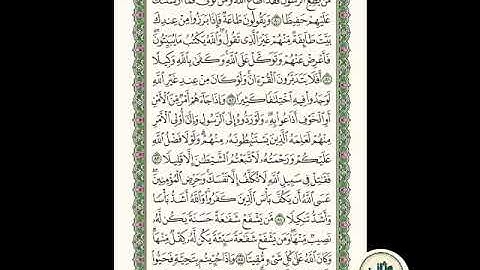 مَّن يُطِعِ ٱلرَّسُولَ فَقَدْ أَطَاعَ ٱللَّهَ وَمَن تَوَلَّىٰ فَمَآ أَرْسَلْنَٰكَ
عَلَيْهِمْ حَفِيظًا ۝٨٠ وَيَقُولُونَ طَاعَةٌ فَإِذَا بَرَزُوا۟ مِنْ عِندِكَ
بَيَّتَ طَآئِفَةٌ مِّنْهُمْ غَيْرَ ٱلَّذِى تَقُولُ وَٱللَّهُ يَكْتُبُ مَا يُبَيِّتُونَ
فَأَعْرِضْ عَنْهُمْ وَتَوَكَّلْ عَلَى ٱللَّهِ وَكَفَىٰ بِٱللَّهِ وَكِيلًا
۝٨١ أَفَلَا يَتَدَبَّرُونَ ٱلْقُرْءَانَ وَلَوْ كَانَ مِنْ عِندِ غَيْرِ ٱللَّهِ
لَوَجَدُوا۟ فِيهِ ٱخْتِلَٰفًا كَثِيرًا ۝٨٢ وَإِذَا جَآءَهُمْ أَمْرٌ مِّنَ ٱلْأَمْنِ
أَوِ ٱلْخَوْفِ أَذَاعُوا۟ بِهِۦ وَلَوْ رَدُّوهُ إِلَى ٱلرَّسُولِ وَإِلَىٰٓ أُو۟لِى ٱلْأَمْرِ
مِنْهُمْ لَعَلِمَهُ ٱلَّذِينَ يَسْتَنۢبِطُونَهُۥ مِنْهُمْ وَلَوْلَا فَضْلُ ٱللَّهِ
عَلَيْكُمْ وَرَحْمَتُهُۥ لَٱتَّبَعْتُمُ ٱلشَّيْطَٰنَ إِلَّا قَلِيلًا ۝٨٣
فَقَٰتِلْ فِى سَبِيلِ ٱللَّهِ لَا تُكَلَّفُ إِلَّا نَفْسَكَ وَحَرِّضِ ٱلْمُؤْمِنِينَ
عَسَى ٱللَّهُ أَن يَكُفَّ بَأْسَ ٱلَّذِينَ كَفَرُوا۟ وَٱللَّهُ أَشَدُّ بَأْسًا
وَأَشَدُّ تَنكِيلًا ۝٨٤ مَّن يَشْفَعْ شَفَٰعَةً حَسَنَةً يَكُن لَّهُۥ
نَصِيبٌ مِّنْهَا وَمَن يَشْفَعْ شَفَٰعَةً سَيِّئَةً يَكُن لَّهُۥ كِفْلٌ مِّنْهَا
وَكَانَ ٱللَّهُ عَلَىٰ كُلِّ شَىْءٍ مُّقِيتًا ۝٨٥ وَإِذَا حُيِّيتُم بِتَحِيَّةٍ فَحَيُّوا۟